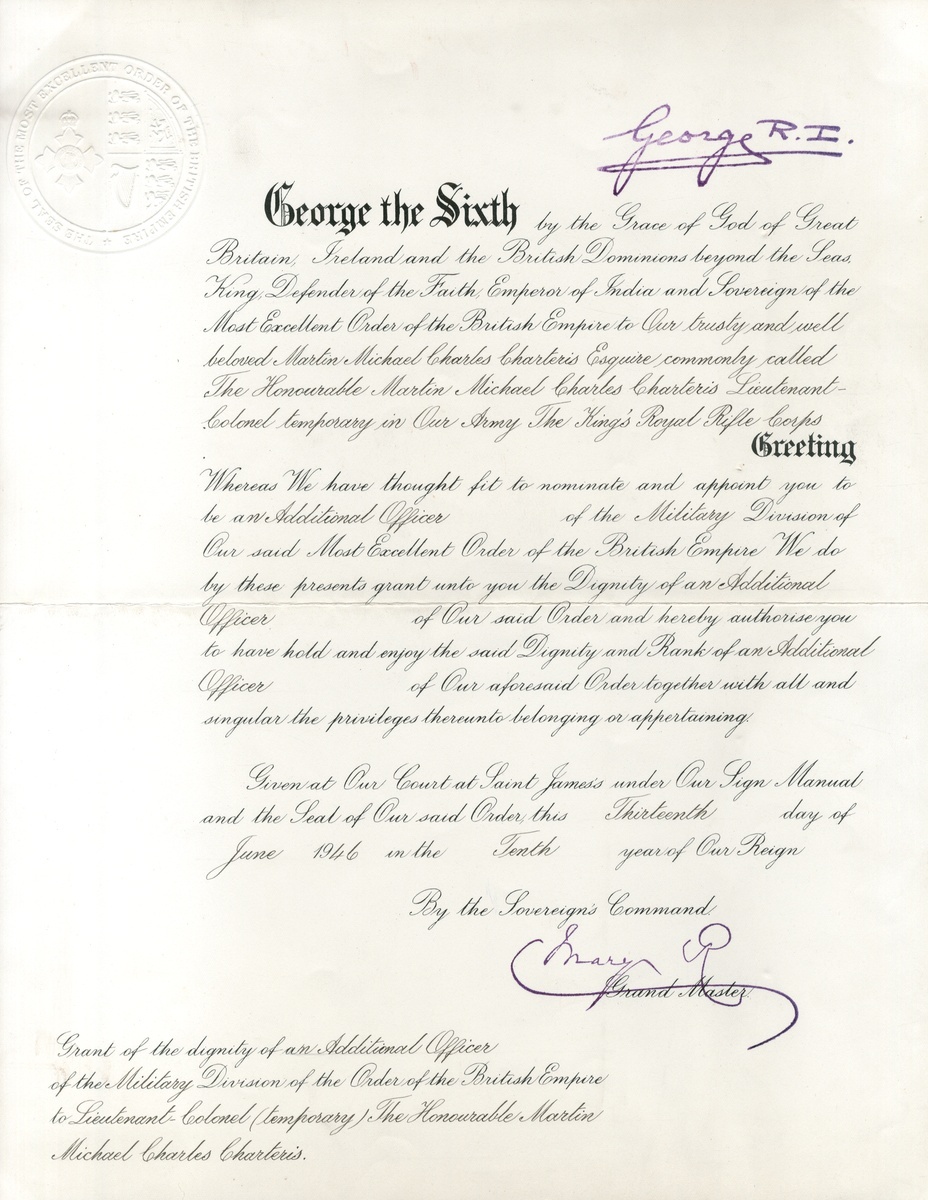 THE SEAL OF THE MOST EXCELLENT ORDER OF THE BRITISH EMPIRE
George R.I.
George the Sixth by the Grace of God of Great
Britain, Ireland and the British Dominions beyond the Seas,
King, Defender of the Faith, Emperor of India and Sovereign of the
Most Excellent Order of the British Empire to Our trusty and well
beloved Martin Michael Charles Charteris Esquire, commonly called
The Honourable Martin Michael Charles Charteris Lieutenant-
Colonel temporary in Our Army The King's Royal Rifle Corps
Greeting
Whereas We have thought fit to nominate and appoint you to
be an Additional Officer of the Military Division of
Our said Most Excellent Order of the British Empire We do
by these presents grant unto you the Dignity of an Additional
Officer of Our said Order and hereby authorise you
to have hold and enjoy the said Dignity and Rank of an Additional
Officer of Our aforesaid Order together with all and
singular the privileges thereunto belonging or appertaining.
Given at Our Court at Saint James's under Our Sign Manual
and the Seal of Our said Order, this Thirteenth day of
June 1946 in the Tenth year of Our Reign
By the Sovereign's Command.
Mary R
Grand Master.
Grant of the dignity of an Additional Officer
of the Military Division of the Order of the British Empire
to Lieutenant-Colonel (temporary) The Honourable Martin
Michael Charles Charteris.